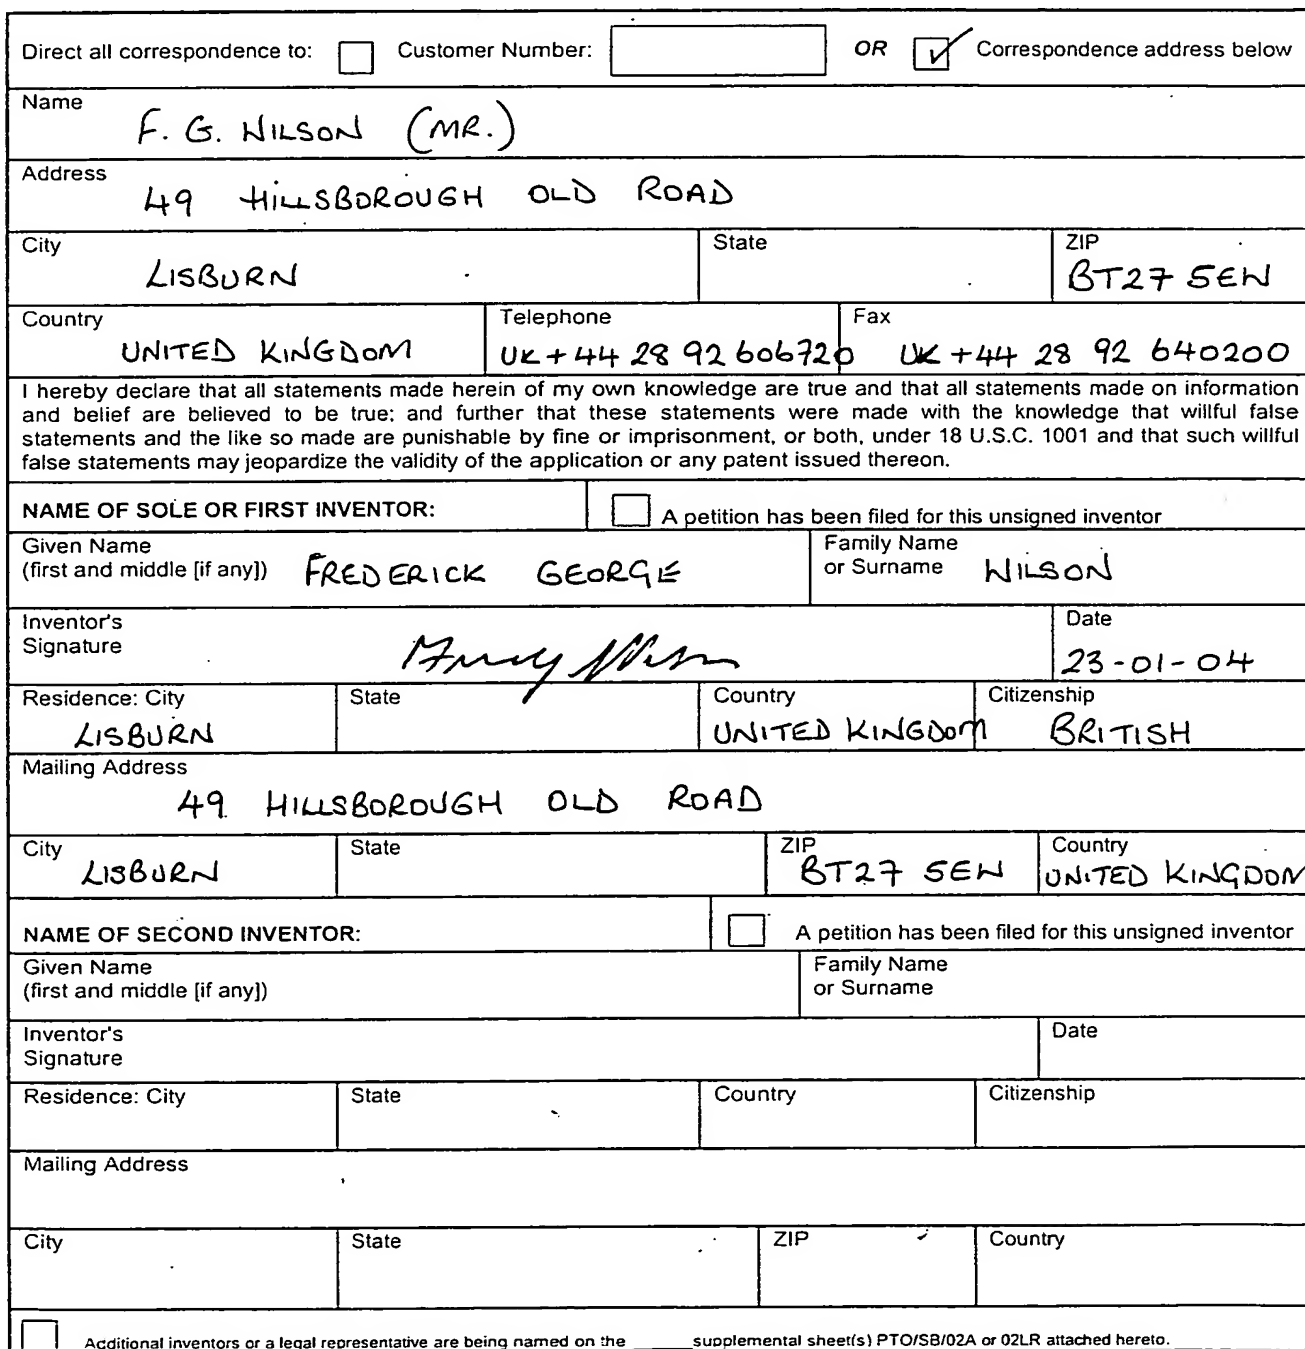 Direct all correspondence to: Customer Number: OR Correspondence address below
Name
F. G. WILSON (MR.)
Address
49 HILLSBOROUGH OLD ROAD
City State ZIP
LISBURN BT27 5EW
Country Telephone Fax
UNITED KINGDOM UK +44 28 92 606720 UK +44 28 92 640200
I hereby declare that all statements made herein of my own knowledge are true and that all statements made on information
and belief are believed to be true; and further that these statements were made with the knowledge that willful false
statements and the like so made are punishable by fine or imprisonment, or both, under 18 U.S.C. 1001 and that such willful
false statements may jeopardize the validity of the application or any patent issued thereon.
NAME OF SOLE OR FIRST INVENTOR: A petition has been filed for this unsigned inventor
Given Name Family Name
(first and middle [if any]) FREDERICK GEORGE or Surname WILSON
Inventor's Date
Signature 23-01-04
Residence: City State Country Citizenship
LISBURN UNITED KINGDOM BRITISH
Mailing Address
49 HILLSBOROUGH OLD ROAD
City State ZIP Country
LISBURN BT27 5EW UNITED KINGDOM
NAME OF SECOND INVENTOR: A petition has been filed for this unsigned inventor
Given Name Family Name
(first and middle [if any]) or Surname
Inventor's Date
Signature
Residence: City State Country Citizenship
Mailing Address
City State ZIP Country
Additional inventors or a legal representative are being named on the ____ supplemental sheet(s) PTO/SB/02A or 02LR attached hereto.